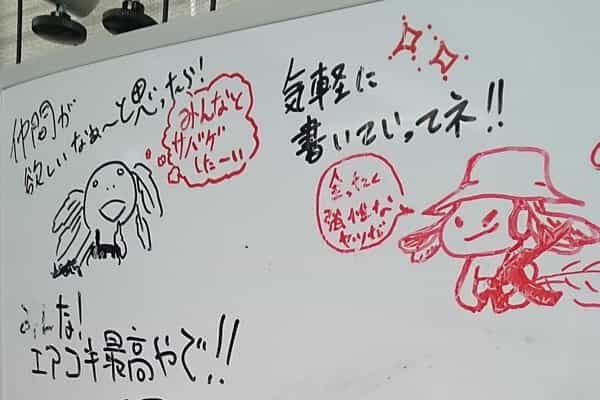 仲間が
欲しいなぁ〜と思ったら!
みんなと
サバゲ
したーい
気軽に
書いていってネ!!
全ったく
強性な
ヤツだ
みんな!
エアコキ最高やで!!